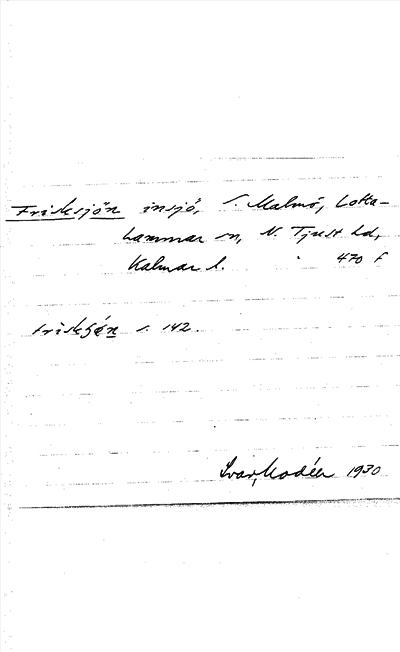 Frisksjön insjö, S. Malmö, Lofta-
hammar sn, N. Tjust hd,
Kalmar l. 470 f
s. 142.
Ivar Modéer 1930